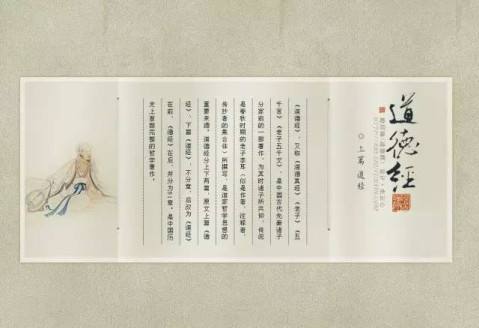 道德经
◎上篇 道经
《道德经》，又称《道德真经》《老子》《五
千言》《老子五千文》，是中国古代先秦诸子
分家前的一部著作，为其时诸子所共仰，传说
是春秋时期的老子李耳（似是作者、注释者、
传抄者的集合体）所撰写，是道家哲学思想的
重要来源。道德经分上下两篇，原文上篇《德
经》、下篇《道经》，不分章，后改为《道经》
在前，《德经》在后，并分为81章，是中国历
史上首部完整的哲学著作。